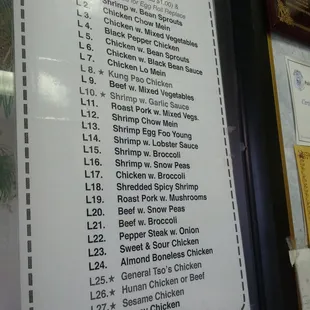 $1.00) &
for Egg Roll Replace
Shrimp w. Bean Sprouts
L 2. Chicken Chow Mein
L 3. Chicken w. Mixed Vegetables
L 4. Black Pepper Chicken
L 5. Chicken w. Bean Sprouts
L 6. Chicken w. Black Bean Sauce
L 7. Chicken Lo Mein
L 8.★ Kung Pao Chicken
L 9. Beef w. Mixed Vegetables
L10.★ Shrimp w. Garlic Sauce
L11. Roast Pork w. Mixed Vegs.
L12. Shrimp Chow Mein
L13. Shrimp Egg Foo Young
L14. Shrimp w. Lobster Sauce
L15. Shrimp w. Broccoli
L16. Shrimp w. Snow Peas
L17. Chicken w. Broccoli
L18. Shredded Spicy Shrimp
L19. Roast Pork w. Mushrooms
L20. Beef w. Snow Peas
L21. Beef w. Broccoli
L22. Pepper Steak w. Onion
L23. Sweet & Sour Chicken
L24. Almond Boneless Chicken
L25.★ General Tso's Chicken
L26.★ Hunan Chicken or Beef
L27.★ Sesame Chicken
Chicken